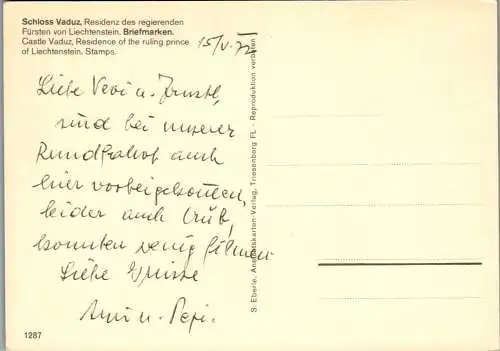 Schloss Vaduz, Residenz des regierenden
Fürsten von Liechtenstein. Briefmarken.
Castle Vaduz, Residence of the ruling prince
of Liechtenstein. Stamps.
15/V. 72
Liebe Vevi u.
sind bei unserer
Rundfahrt auch
hier vorbeigekommen,
leider auch trüb,
konnten wenig filmen
Liebe Grüsse
u. Pepi.
S. Eberle, Ansichtskarten-Verlag, Triesenberg FL - Reproduktion verboten
1287